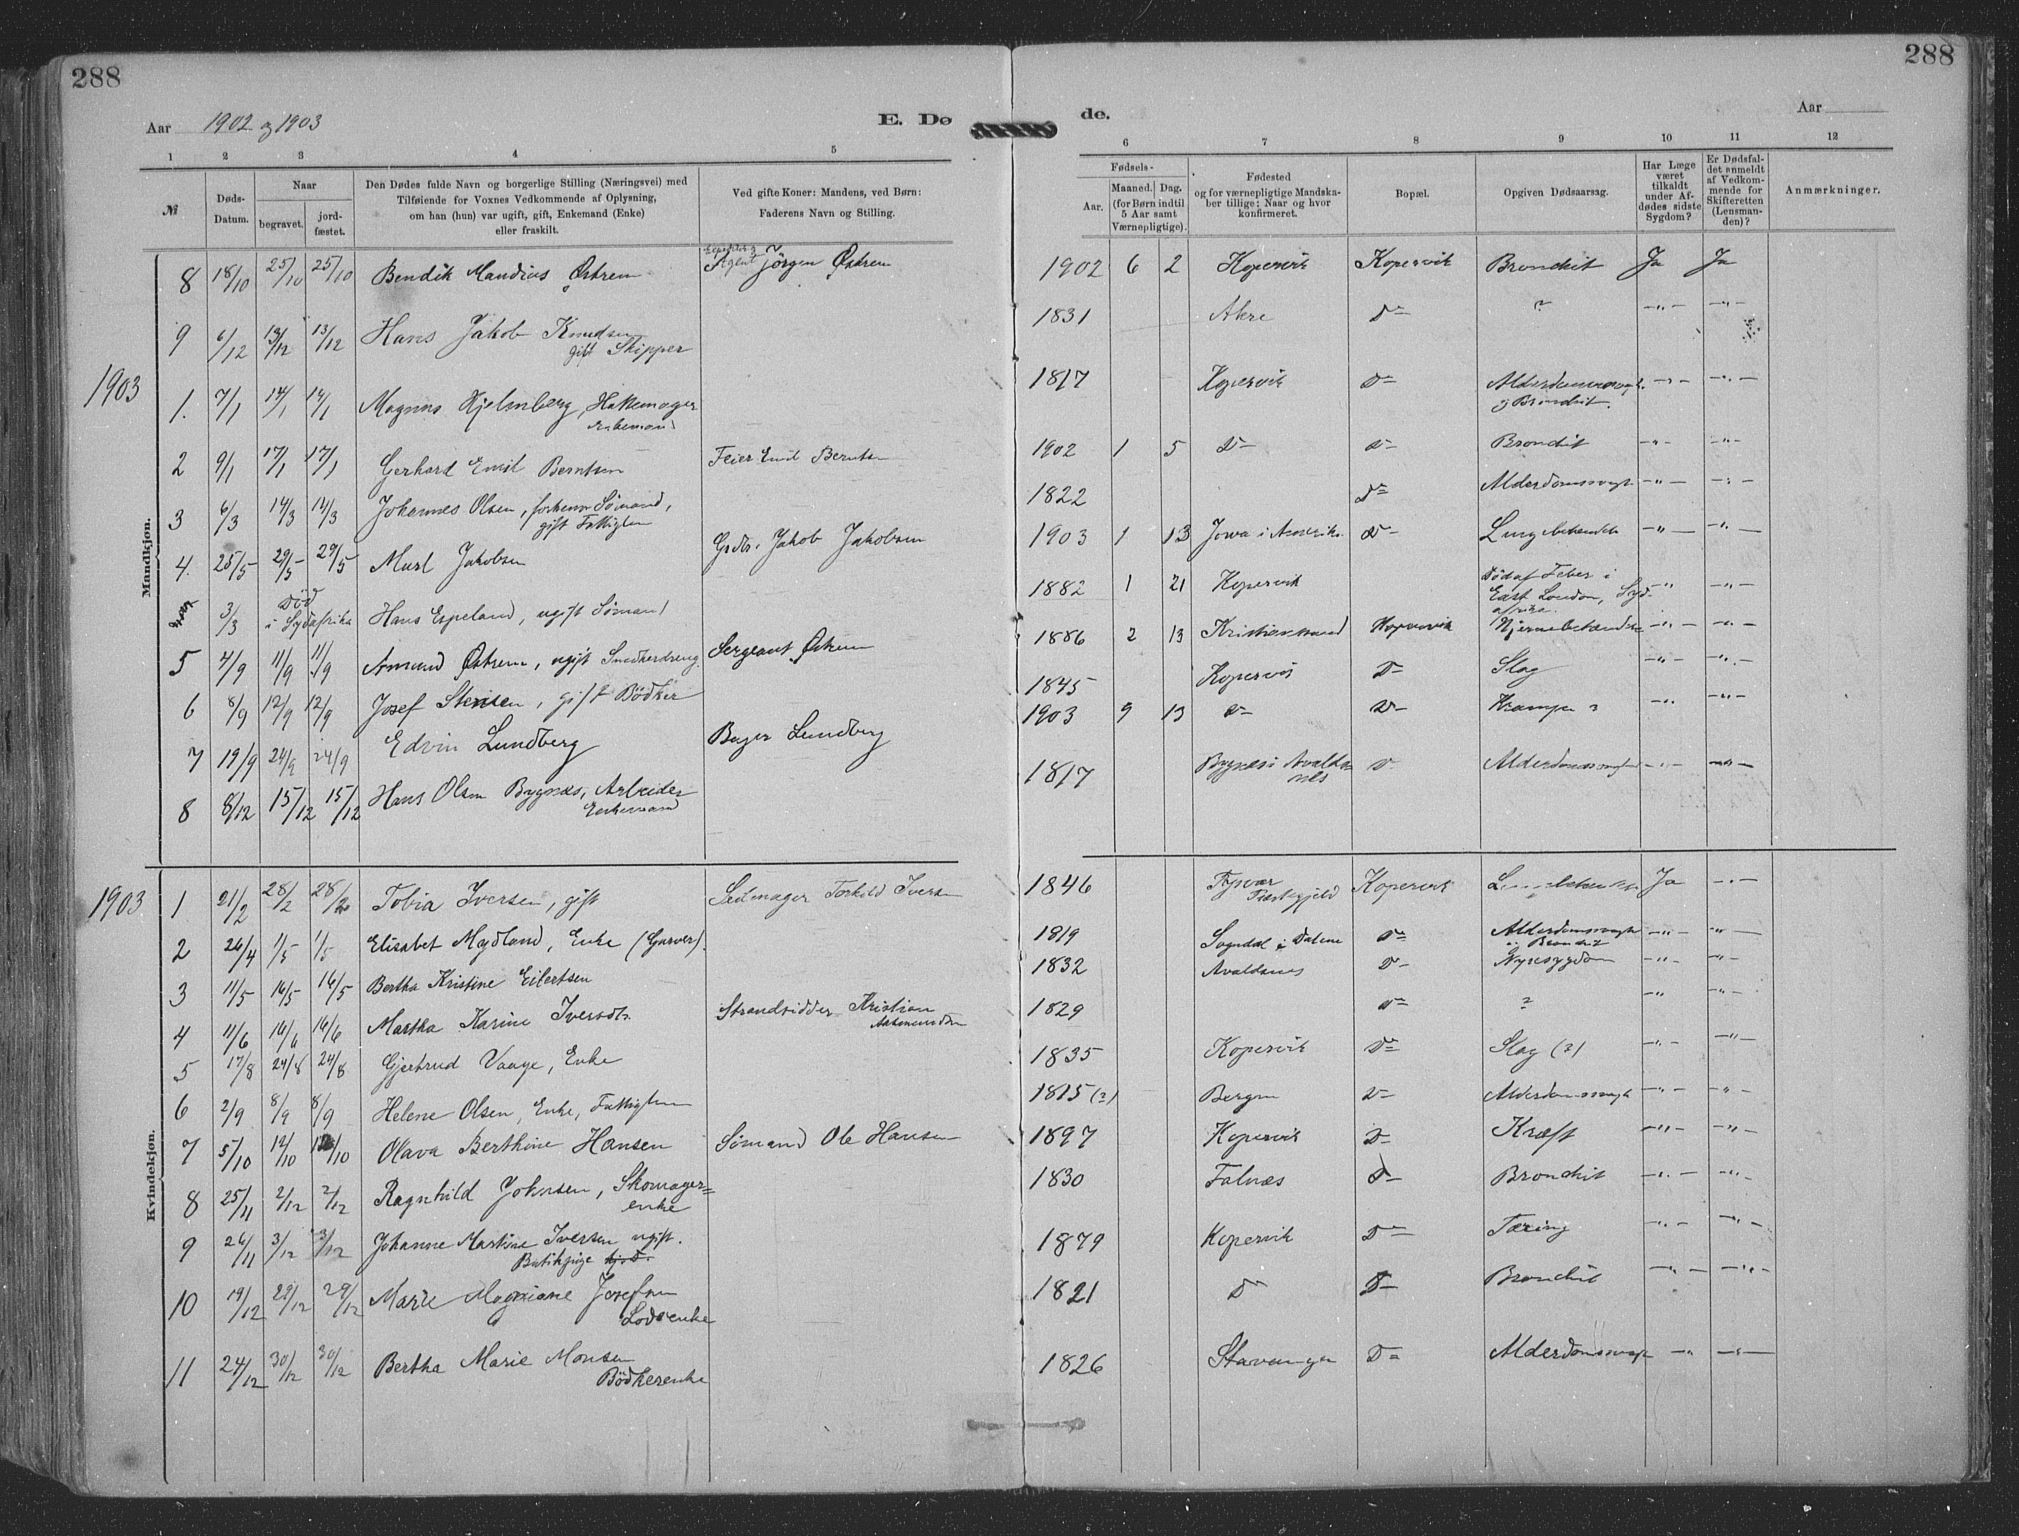 288
288
Aar 1902 og 1903
E. Dø
de.
Aar
1 2 3 4 5
6 7 8 9 10 11 12
№
Døds-Datum.
Naar
begravet.
jord-fæstet.
Den Dødes fulde Navn og borgerlige Stilling (Næringsvei) med
Tilføiende for Voxnes Vedkommende af Oplysning,
om han (hun) var ugift, gift, Enkemand (Enke)
eller fraskilt.
Ved gifte Koner: Mandens, ved Børn:
Faderens Navn og Stilling.
Fødsels-
Aar.
Maaned. Dag.
(for Børn indtil
5 Aar samt
Værnepligtige).
Fødested
og for værnepligtige Mandska-
ber tillige: Naar og hvor
konfirmeret.
Bopæl.
Opgiven Dødsaarsag.
Har Læge
været
tilkaldt
under Af-
dødes sidste
Sygdom?
Er Dødsfal-
det anmeldt
af Vedkom-
mende for
Skifteretten
(Lensman-
den)?
Anmærkninger.
Mandkjøn.
8 18/10 25/10 25/10 Bendik Mandius Østrem Agent Jörgen Østrem 1902 6 2 Kopervik Kopervik Bronchit Ja Ja
9 6/12 13/12 13/12 Hans Jakob Knudsen gift Skipper 1831 Akre D- ? -"- -"-
1903
1. 7/1 14/1 14/1 Magnus Hjelmberg, Hattemager Enkemand 1817 Kopervik D- Alderdomssvagh. og Bronchit. -"- -"-
2 9/1 17/1 17/1 Gerhard Emil Berntsen Feier Emil Berntsen 1902 1 5 D- D- Bronchit -"- -"-
3 6/3 14/3 14/3 Johannes Olsen, forhenv. Sømand, gift Fattiglem 1822 D- Alderdomssvagh -"- -"-
4. 25/5 29/5 29/5 Jakobsen Grdbr. Jakob Jakobsen 1903 1 13 Jowa i Amerika D- Lungebetændelse -"- -"-
3/3 Död i Sydafrika Hans Espeland, ugift Sömand 1882 1 21 Kopervik Död af Feber i East London, Syd-afrika. -"- -"-
5 4/9 11/9 11/9 Amund Østrem, ugift Snedkerdreng Sergeant Østrem 1886 2 13 Kristianssand Kopervik Hjernebetændelse -"- -"-
6 8/9 12/9 12/9 Josef Stensen, gift Bödker 1845 Kopervik D- Slag -"- -"-
7 19/9 24/9 24/9 Edvin Lundberg Bager Lundberg 1903 9 13 D- D- Krampe ? -"- -"-
8 8/12 15/12 15/12 Hans Olsen Bygnæs, Arbeider Enkemand 1817 Bygnæs i Avaldsnes D- Alderdomssvaghed -"- -"-
Kvindekjøn.
1903
1 21/2 28/2 28/2 Tobia Iversen, gift Sadmager Torkild Iversen 1846 Tysvær Præstegjeld Kopervik Lungebetændelse Ja -"-
2 26/4 1/5 1/5 Elisabet Mydland, Enke (Garver). 1819 Sogndal i Dalene D- Alderdomssvagh Bronchit -"- -"-
3 11/5 16/5 16/5 Bertha Kristine Eilertsen 1832 Avaldsnes D- Nyresygdom -"- -"-
4 11/6 16/6 16/6 Martha Karine Iversdtr Strandsidder Kristian Aasmundsen 1829 D- ? -"- -"-
5 17/8 24/8 24/8 Gjertrud Vaage, Enke 1835 Kopervik D- Slag (?) -"- -"-
6 2/9 8/9 8/9 Helene Olsen, Enke, Fattiglem 1815 (?) Bergen D- Alderdomssvagh -"- -"-
7 5/10 12/10 12/10 Olava Berthine Hansen Sømand Ole Hansen 1897 Kopervik D- Kræft -"- -"-
8 25/11 2/12 2/12 Ragnhild Johnsen, Skomager= enke 1830 Falnæs D- Bronchit -"- -"-
9 26/11 3/12 3/12 Johanne Martine Iversen ugift. Butikpige 1879 Kopervik D- Tæring -"- -"-
10 19/12 29/12 29/12 Marie Magniane Josefsen Lodsenke 1821 D- D- Bronchit -"- -"-
11 24/12 30/12 30/12 Bertha Marie Monsen Bödkerenke 1826 Stavanger D- Alderdomssvagh -"- -"-